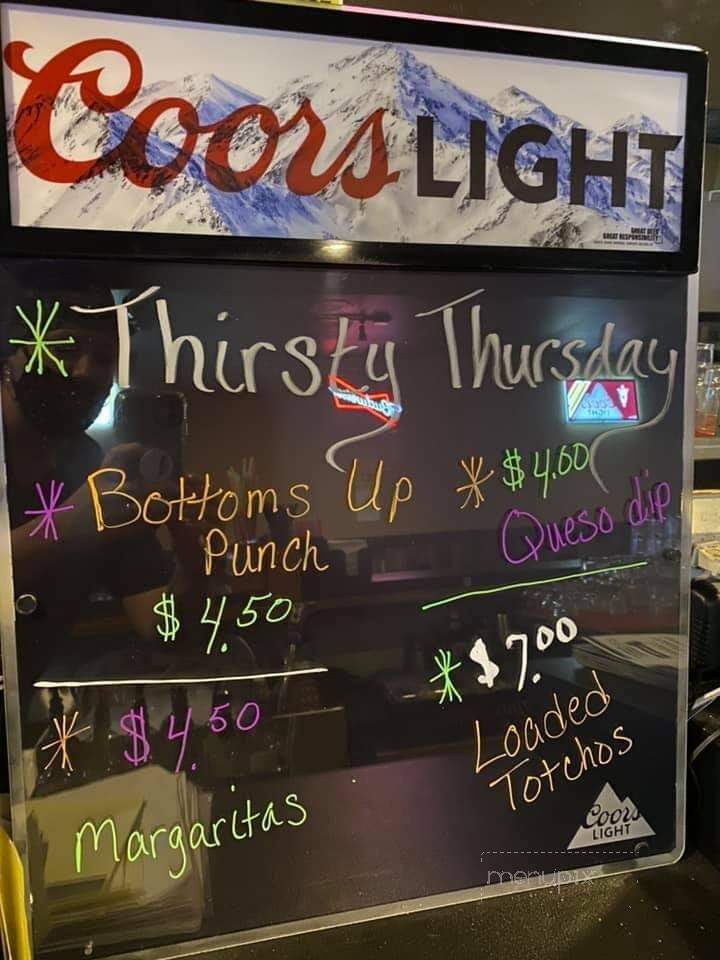 Coors LIGHT
GREAT BEER
GREAT RESPONSIBILITY
* Thirsty Thursday
* Bottoms Up
Punch
$4.50
* $4.50
Margaritas
* $4.00
Queso dip
* $7.00
Loaded
Totchos
Budweiser
Coors
LIGHT
Coors
LIGHT
menupix